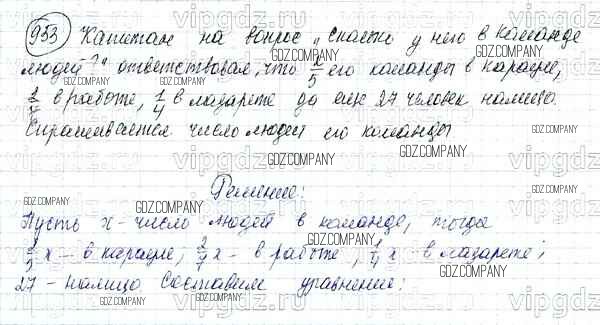 953 Капитан на вопрос „сколько у него в команде
людей?" ответствовал, что 2/5 его команды в карауле,
2/7 в работе, 1/4 в лазарете да еще 27 человек налицо.
Спрашивается число людей его команды
Решение:
Пусть x - число людей в команде, тогда
2/5 x - в карауле, 2/7 x - в работе, 1/4 x - в лазарете;
27 - налицо Составим уравнение: